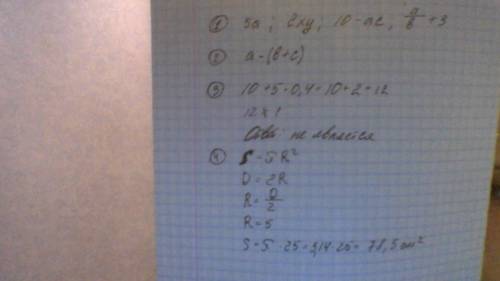 ① 5a ; 2xy ; 10-ac ; a/b + 3
② a-(b+c)
③ 10+5·0,4=10+2=12
12 ≠ 1
Ответ: не является
④ S=πR²
D=2R
R=D/2
R=5
S=π·25=3,14·25=78,5 см²